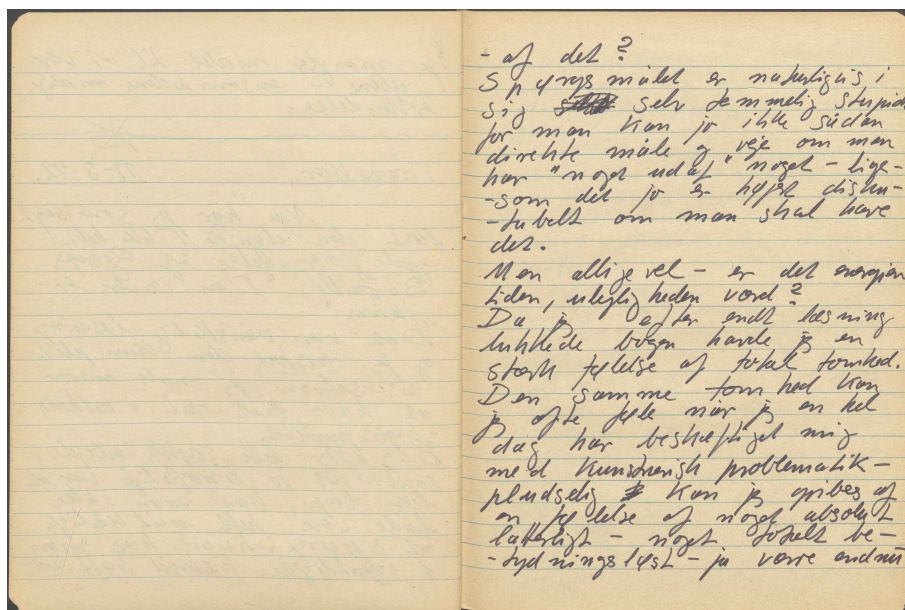 - af det?
Spørgsmålet er naturligvis i
sig selv temmelig stupid
for man kan jo ikke sådan
direkte måle og veje om man
har "noget ud af" noget - lige-
-som det jo er højst disku-
-tabelt om man skal have
det.
Men alligevel - er det energien
tiden, ulejligheden værd?
Da jeg efter endt læsning
lukkede bogen havde jeg en
stærk følelse af total tomhed.
Den samme tomhed kan
jeg ofte føle når jeg en hel
dag har beskæftiget mig
med kunstnerisk problematik -
pludselig kan jeg gribes af
en følelse af noget absolut
latterligt - noget totalt be-
-tydningsløst - ja værre endnu